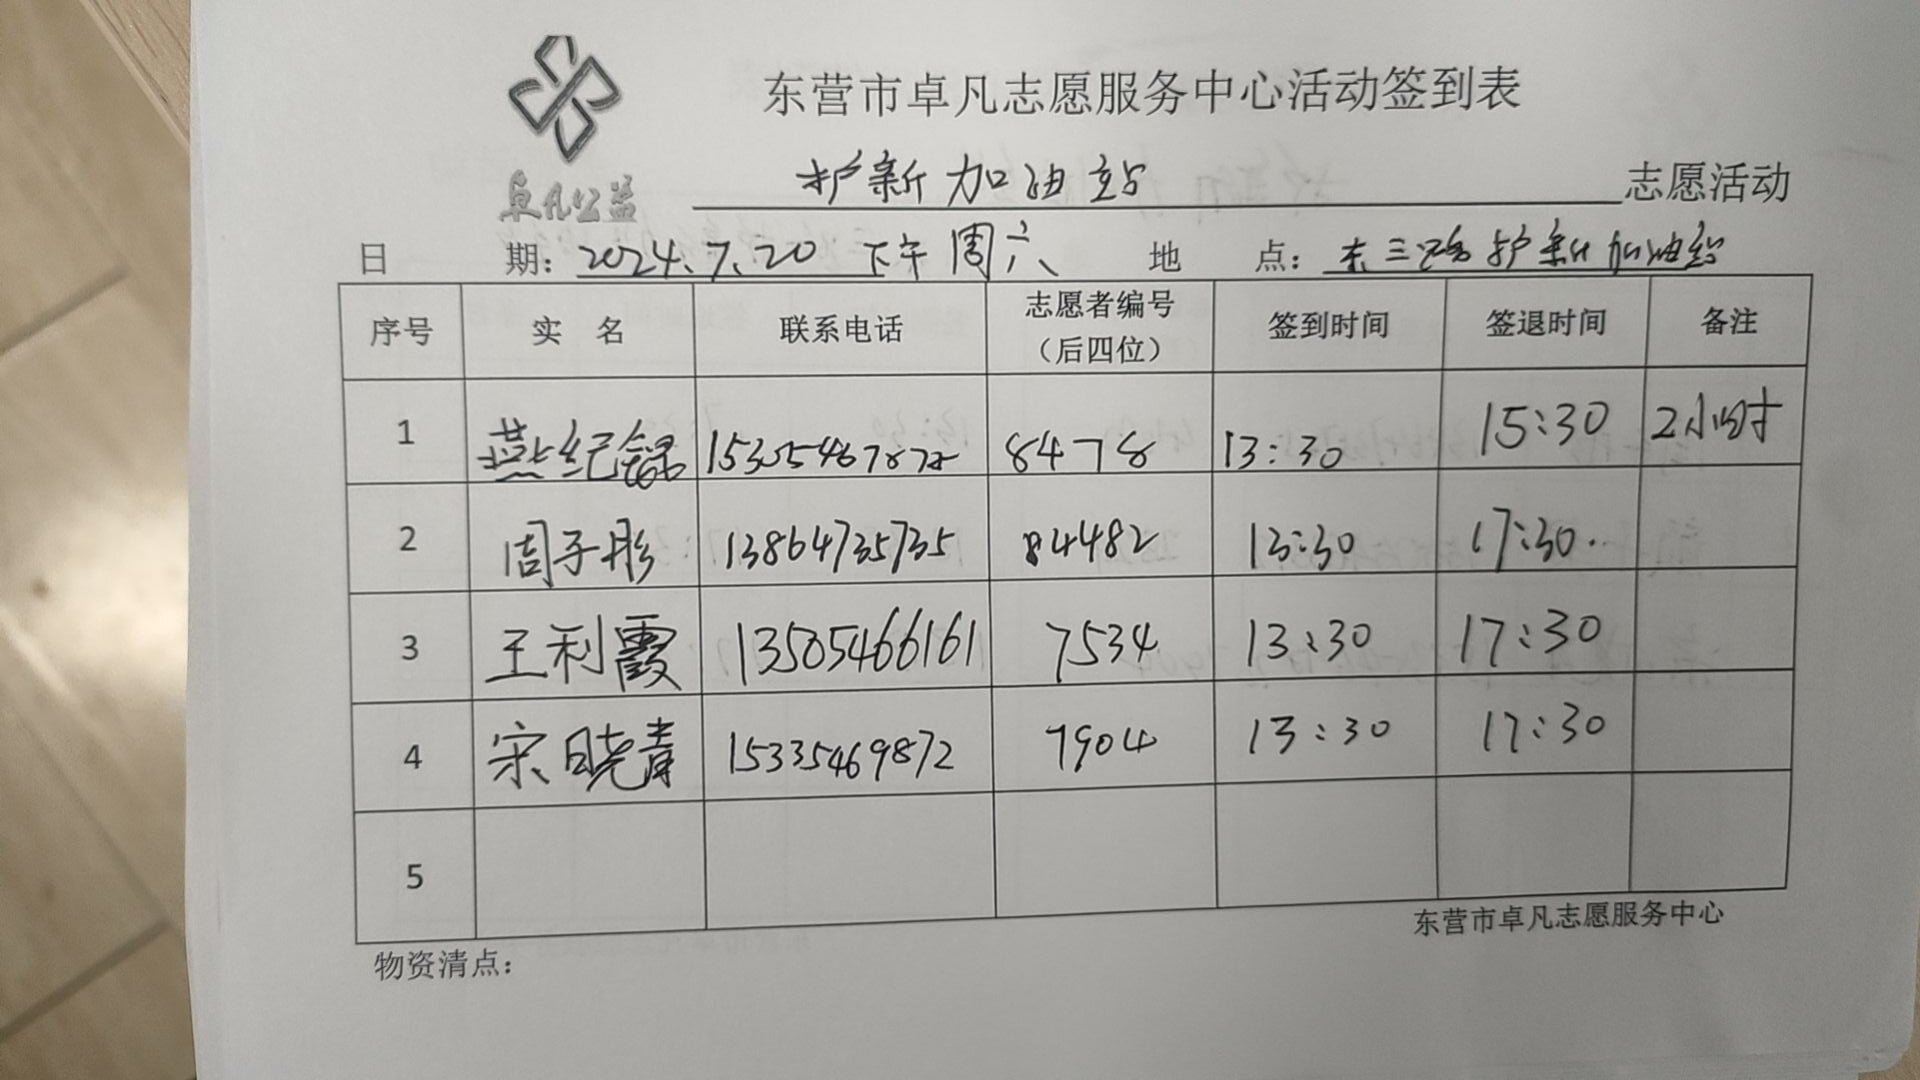 东营市卓凡志愿服务中心活动签到表
卓凡公益
护新加油站 志愿活动
日 期：2024.7.20 下午 周六 地 点：东三路护新加油站
序号 实 名 联系电话 志愿者编号（后四位） 签到时间 签退时间 备注
1 燕纪 8478 13:30 15:30 2小时
2 周子彤 13864735735 4482 13:30 17:30.
3 王利霞 13505466161 7534 13:30 17:30
4 宋晓青 15335469872 7904 13:30 17:30
5
东营市卓凡志愿服务中心
物资清点：